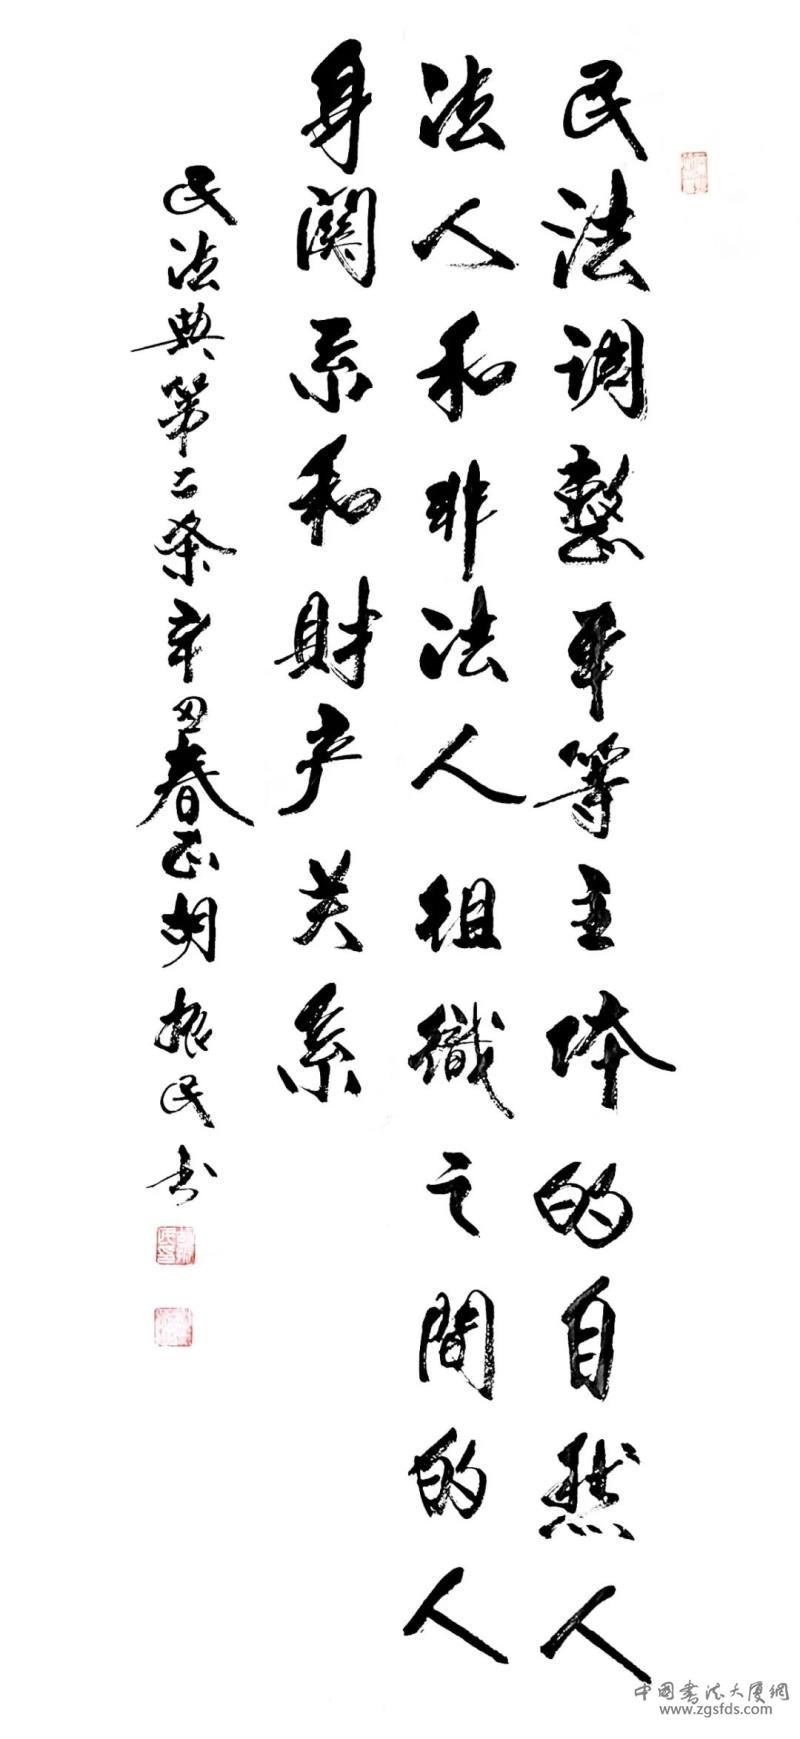 民法调整平等主体的自然人
法人和非法人组织之间的人
身関系和财产关系
民法典第二条辛丑春正胡振民书
中国书法大厦網
www.zgsfds.com